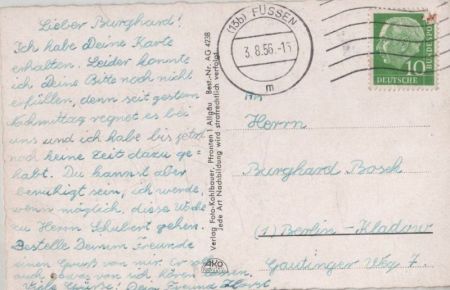 Lieber Burghard!
Ich habe Deine Karte
erhalten. Leider konnte
ich Deine Bitte noch nicht
erfüllen, denn seit gestern
Nachmittag regnet es bei
uns und ich habe bis jetzt
noch keine Zeit dazu ge-
habt. Du kannst aber
beruhigt sein, ich werde
wenn möglich, diese Woche
zu Herrn Schubert gehen.
Bestelle Deinem Freunde
einen Gruß von mir. Er soll
auch etwas von sich hören lassen.
Viele Grüße! Dein Freund Horst
Verlag Foto-Kohlbauer, Pfronten i Allgäu Best.-Nr. AG 4238
Jede Art Nachbildung wird strafrechtlich verfolgt
AKO
(13b) FÜSSEN
3.8.56
m
10
DEUTSCHE
BUNDESPOST
An
Herrn
Burghard Bosek
(1) Berlin-Kladow
Gautinger Weg 7.